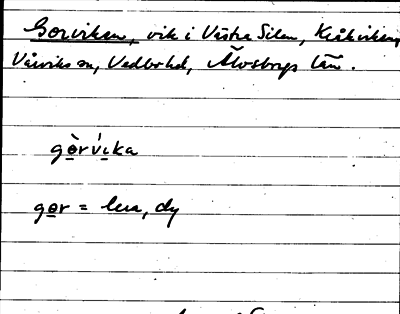 Gorviken, vik i Västra Silen, Kråkviken,
Vårviks sn, Vedbo hd, Älvsborgs län.
gòrvíka
gor = lera, dy